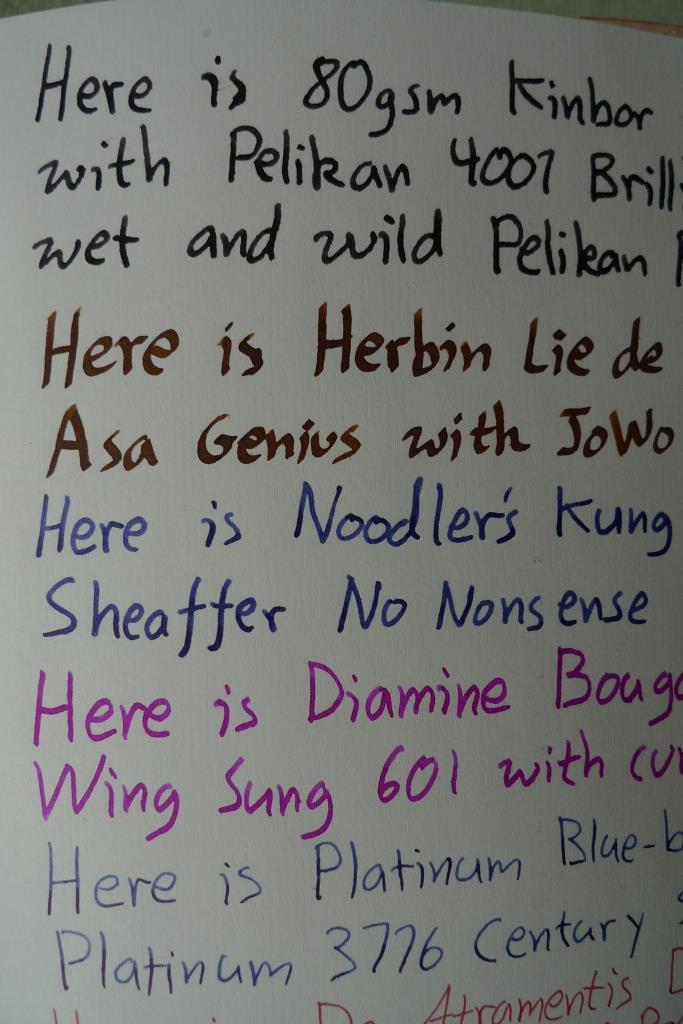 Here is 80gsm Kinbor
with Pelikan 4001 Brill
wet and wild Pelikan
Here is Herbin Lie de
Asa Genius with JoWo
Here is Noodler's Kung
Sheaffer No Nonsense
Here is Diamine Boug
Wing Sung 601 with cu
Here is Platinum Blue-b
Platinum 3776 Century
Here is De Atramentis D